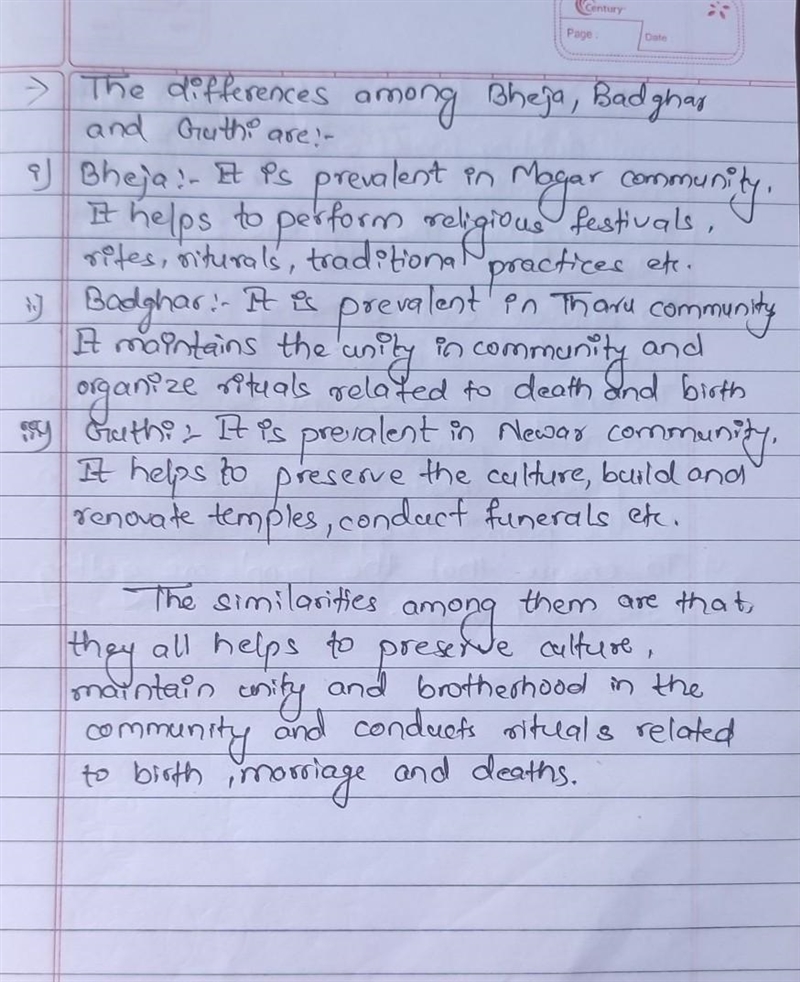 Century
Page :
Date
-> The differences among Bheja, Badghar
and Guthi are:-
i) Bheja :- It is prevalent in Magar community.
It helps to perform religious festivals,
rites, riturals, traditional practices etc.
ii) Badghar :- It is prevalent in Tharu community
It maintains the unity in community and
organize rituals related to death and birth
iii) Guthi :- It is prevalent in Newar community.
It helps to preserve the culture, build and
renovate temples, conduct funerals etc.
The similarities among them are that,
they all helps to preserve culture,
maintain unity and brotherhood in the
community and conducts rituals related
to birth, marriage and deaths.